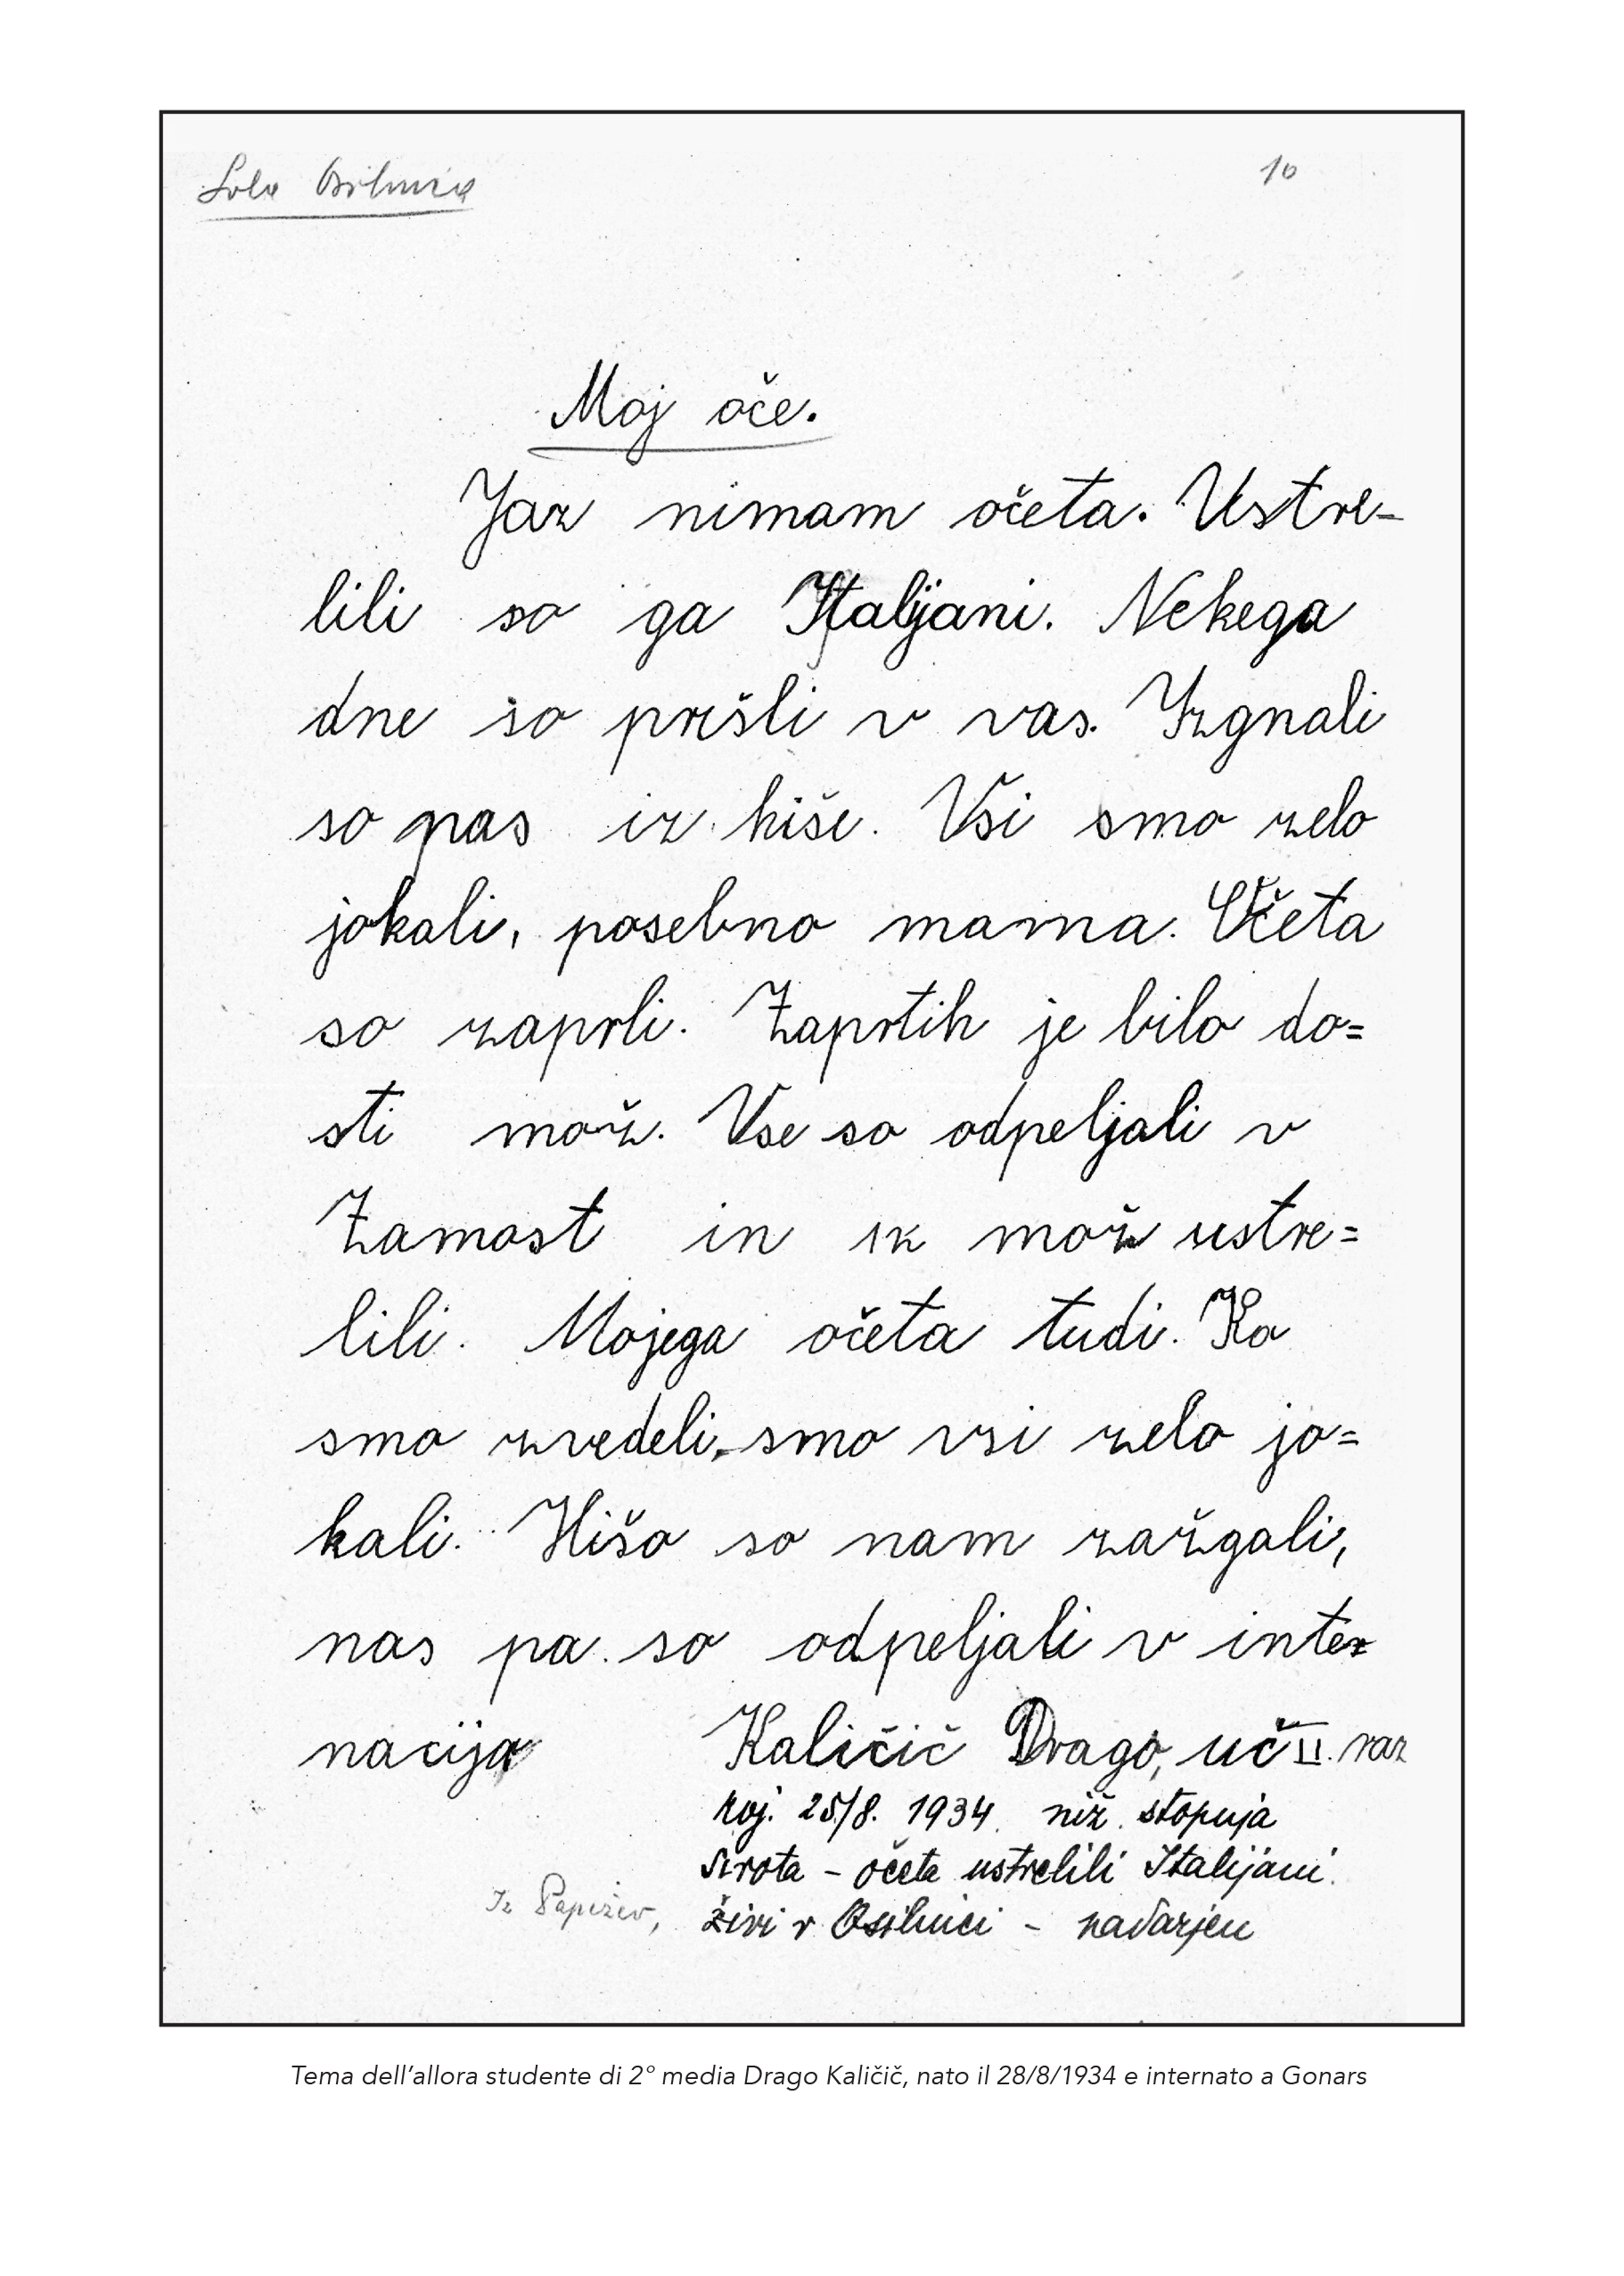 Šola Osilnica
10
Moj oče.
Jaz nimam očeta. Ustre-
lili so ga Italjani. Nekega
dne so prišli v vas. Izgnali
so nas iz hiše. Vsi smo zelo
jokali, posebno mama. Očeta
so zaprli. Zaprtih je bilo do=
sti mož. Vse so odpeljali v
Zamost in mož ustre=
lili. Mojega očeta tudi. Ko
smo zvedeli, smo vsi zelo jo=
kali. Hišo so nam zažgali,
nas pa so odpeljali v inter
nacija
Kaličič Drago, uč II. raz
roj. 25/8. 1934. niž. stopnja
sirota – očeta ustrelili Italijani.
Iz Papežev, živi v Osilnici – nadarjen
Tema dell’allora studente di 2° media Drago Kaličič, nato il 28/8/1934 e internato a Gonars